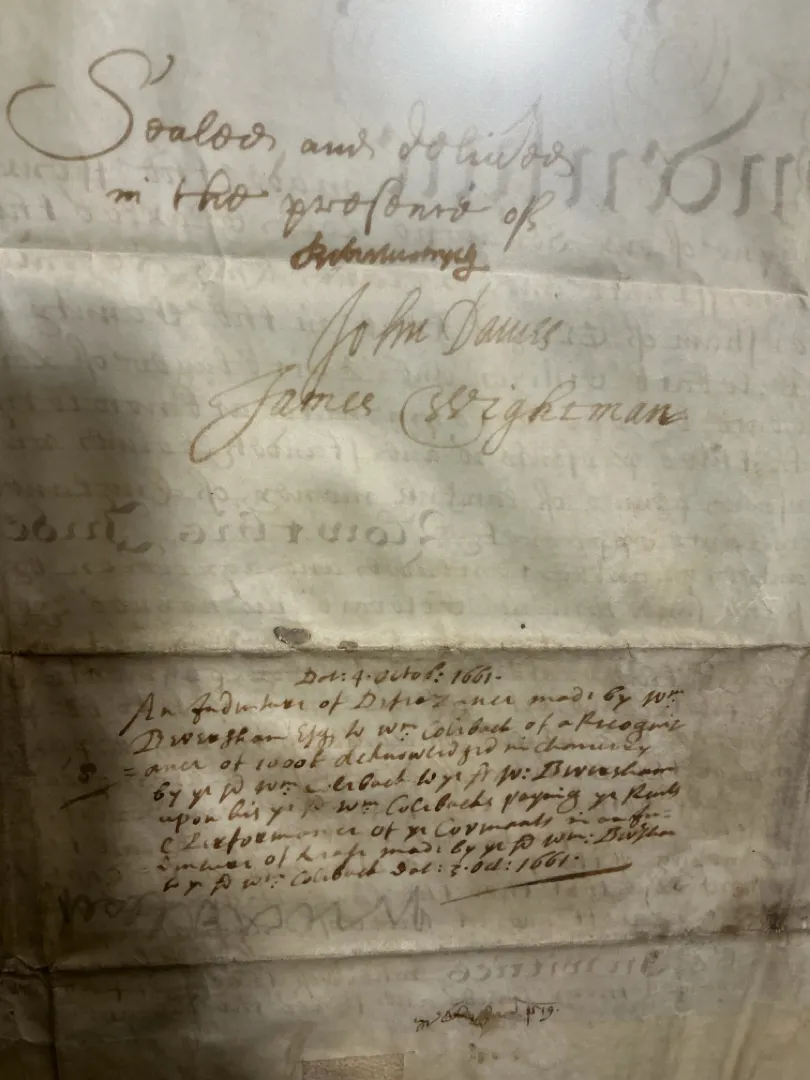 Sealed and delivered
in the presence of
John Davies
James Wightman
Dat: 4. Octob: 1661.
An Indenture of Defeazance made by Wm
Esqr to Wm Colebach of a Recogniz
= ance of 1000£ acknowledged in Chancery
8
by ye sd Wm Colebach to ye sd W:
upon his ye sd Wm Colebachs paying ye Rents
& Performance of ye Covenants in an In=
denture of Lease made by ye sd Wm:
to ye sd Wm Colebach Dat: 3. Oct: 1661.